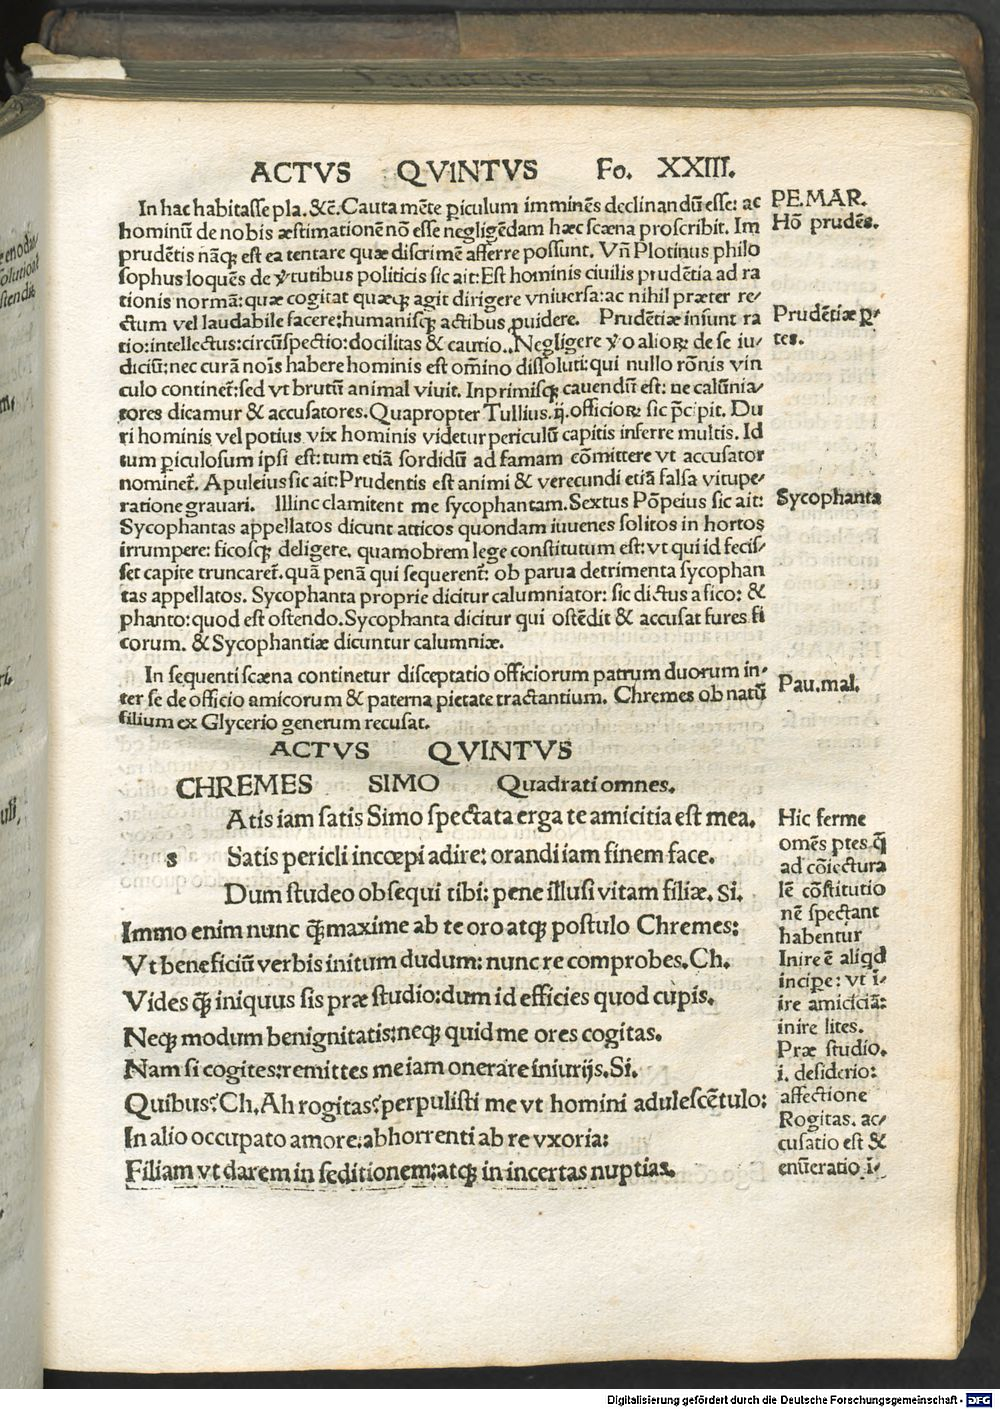 ACTVS QVINTVS Fo. XXIII.
In hac habitasse pla. &c̄. Cauta mēte ꝑiculum imminēs declinandū esse: ac
hominū de nobis æstimationē nō esse negligēdam hæc scæna proscribit. Im
prudētis nāqꝫ est ea tentare quæ discrimē afferre possunt. Vn̄ Plotinus philo
sophus loquēs de v̓tutibus politicis sic ait: Est hominis ciuilis prudētia ad ra
tionis normā: quæ cogitat quæqꝫ agit dirigere vniuersa: ac nihil præter re/
ctum vel laudabile facere: humanisqꝫ actibus ꝓuidere. Prudētiæ insunt ra
tio: intellectus: circūspectio: docilitas & cautio. Negligere v̓o alioꝝ de se iu/
diciū: nec curā nois̄ habere hominis est om̄ino dissoluti: qui nullo rōnis vin
culo continet̄: sed vt brutū animal viuit. Inprimisqꝫ cauendū est: ne calūnia/
tores dicamur & accusatores. Quapropter Tullius. ij. officioꝝ sic p̄cipit. Du
ri hominis vel potius vix hominis videtur periculū capitis inferre multis. Id
tum ꝑiculosum ipsi est: tum etiā sordidū ad famam cōmittere vt accusator
nominet̄. Apuleius sic ait: Prudentis est animi & verecundi etiā falsa vitupe/
ratione grauari. Illinc clamitent me sycophantam. Sextus Pōpeius sic ait:
Sycophantas appellatos dicunt atticos quondam iuuenes solitos in hortos
irrumpere: ficosqꝫ deligere. quamobrem lege constitutum est: vt qui id fecis/
set capite truncaret̄. quā penā qui sequerent̄: ob parua detrimenta sycophan
tas appellatos. Sycophanta proprie dicitur calumniator: sic dictus a fico: &
phanto: quod est ostendo. Sycophanta dicitur qui ostēdit & accusat fures fi
corum. & Sycophantiæ dicuntur calumniæ.
PE. MAR.
Hō prudēs.
Prudētiæ ꝑ/
tes.
Sycophanta
In sequenti scæna continetur disceptatio officiorum patrum duorum in/
ter se de officio amicorum & paterna pietate tractantium. Chremes ob natū
filium ex Glycerio generum recusat.
Pau. mal.
ACTVS QVINTVS
CHREMES SIMO Quadrati omnes.
s Atis iam satis Simo spectata erga te amicitia est mea.
Satis pericli incœpi adire: orandi iam finem face.
Dum studeo obsequi tibi: pene illusi vitam filiæ. Si.
Immo enim nunc qꝫ̄ maxime ab te oro atqꝫ postulo Chremes:
Vt beneficiū verbis initum dudum: nunc re comprobes. Ch.
Vides qꝫ̄ iniquus sis præ studio: dum id efficies quod cupis.
Neqꝫ modum benignitatis: neqꝫ quid me ores cogitas.
Nam si cogites: remittes me iam onerare iniurijs. Si.
Quibus? Ch. Ah rogitas? perpulisti me vt homini adulescētulo:
In alio occupato amore: abhorrenti ab re vxoria:
Filiam vt darem in seditionem: atqꝫ in incertas nuptias.
Hic ferme
omēs ptes q̄
ad cōiectura
lē cōstitutio
nē spectant
habentur
Inire ē aliqd
incipe: vt i/
ire amiciciā:
inire lites.
Præ studio.
i. desiderio:
affectione
Rogitas. ac/
cusatio est &
enūeratio i/
Digitalisierung gefördert durch die Deutsche Forschungsgemeinschaft - DFG